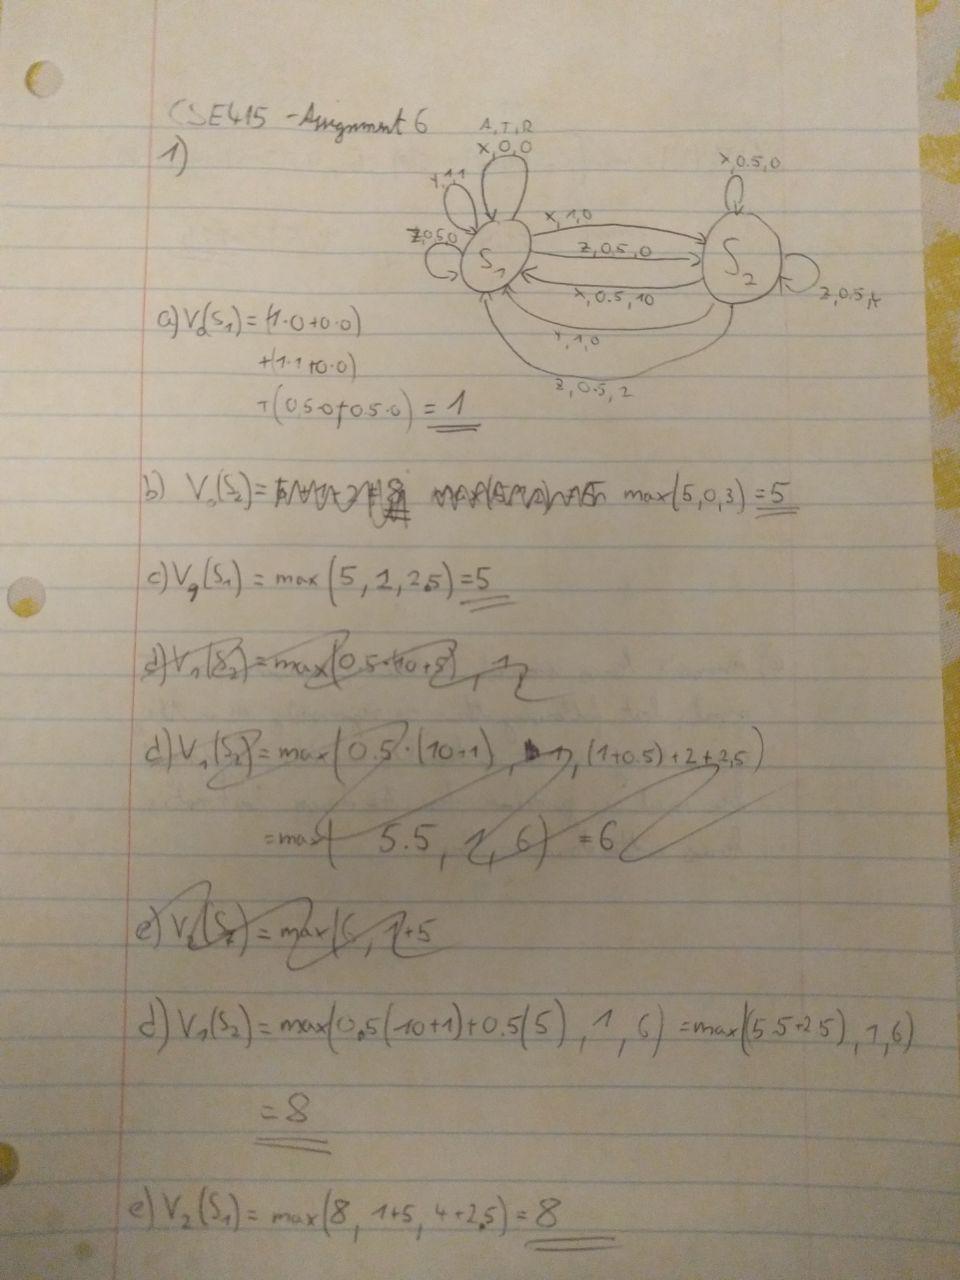 CSE415 - Assignment 6
1)
A, T, R
X, 0, 0
Y, 1, 1
Z, 0.5, 0
S1
X, 1, 0
Z, 0.5, 0
X, 0.5, 10
Y, 1, 0
Z, 0.5, 2
X, 0.5, 0
S2
Z, 0.5, 4
a) V0(S1) = (1·0+0·0)
+(1·1+0·0)
+(0.5·0+0.5·0) = 1
b) V0(S2) = max(5,0,3) = 5
c) V1(S1) = max(5, 1, 2.5) = 5
d) V1(S2) = max(0.5·(10+5), 1,
d) V1(S2) = max(0.5·(10+1), 1, (1+0.5)+2+2.5)
= max( 5.5, 1, 6) = 6
e) V2(S2) = max(6, 1+5
d) V1(S2) = max(0.5(10+1)+0.5(5), 1, 6) = max((5.5+2.5), 1, 6)
= 8
e) V2(S1) = max(8, 1+5, 4+2.5) = 8